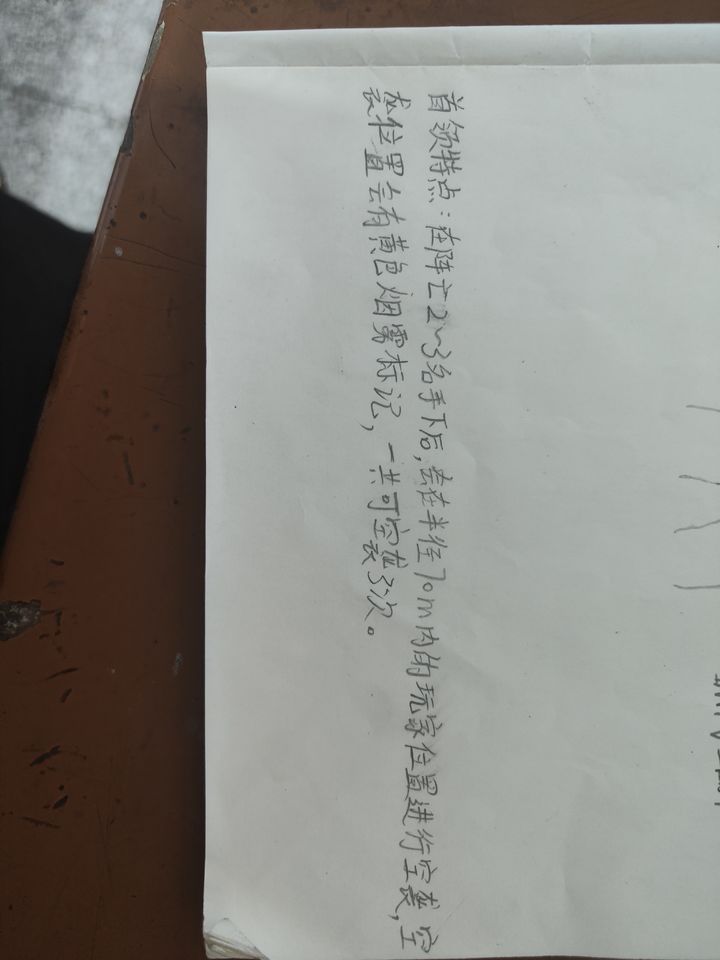 首领特点：在阵亡2~3名手下后，会在半径70m内的玩家位置进行空袭，空
袭位置会有黄色烟雾标记，一共可空袭3次。